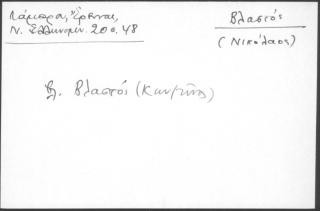 Λάμπρου, Ἔρευναι,
Ν. Ἑλληνομν. 20ος. 48
Βλαστός
(Νικόλαος)
βλ. Βλαστός (Καν